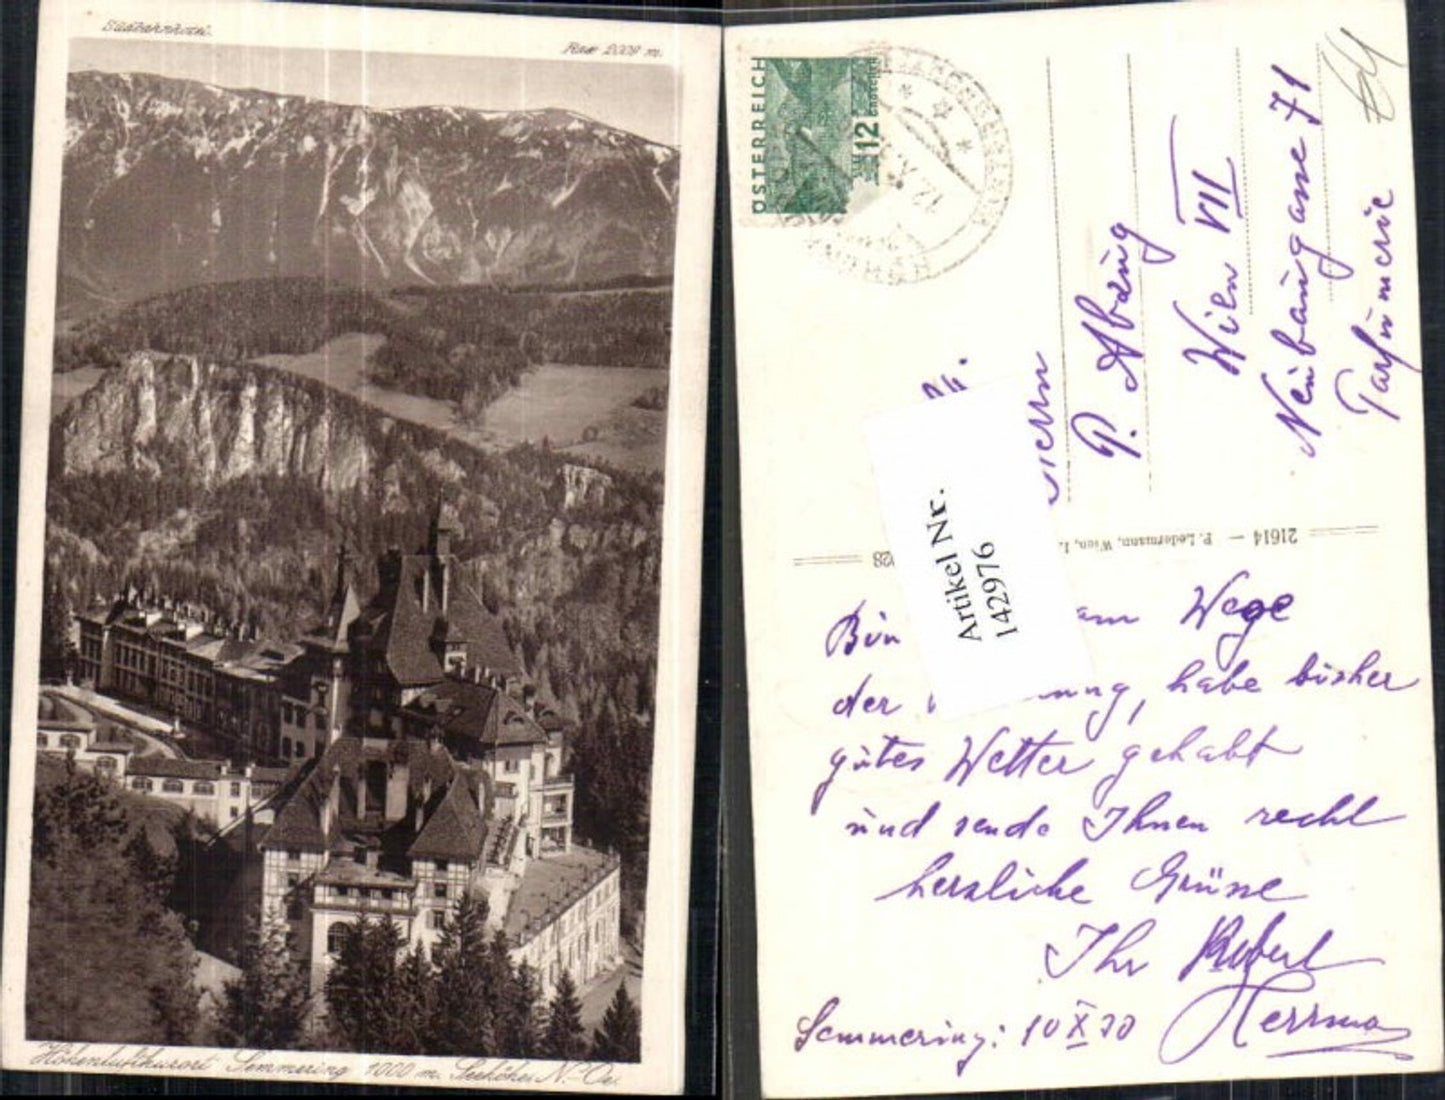 Südbahnhotel.
Rax 2009 m.
Höhenluftkurort Semmering 1000 m. Seehöhe, N.-Oe.
ÖSTERREICH
12
GROSCHEN
P.
Wien VII
Neubaugasse 71
Parfumerie
21614 — P. Ledermann, Wien, I.
Artikel Nr.
142976
Bin am Wege
der habe bisher
gutes Wetter gehabt
und sende Ihnen recht
herzliche Grüsse
Ihr Robert
Herrma
Semmering: 10 X